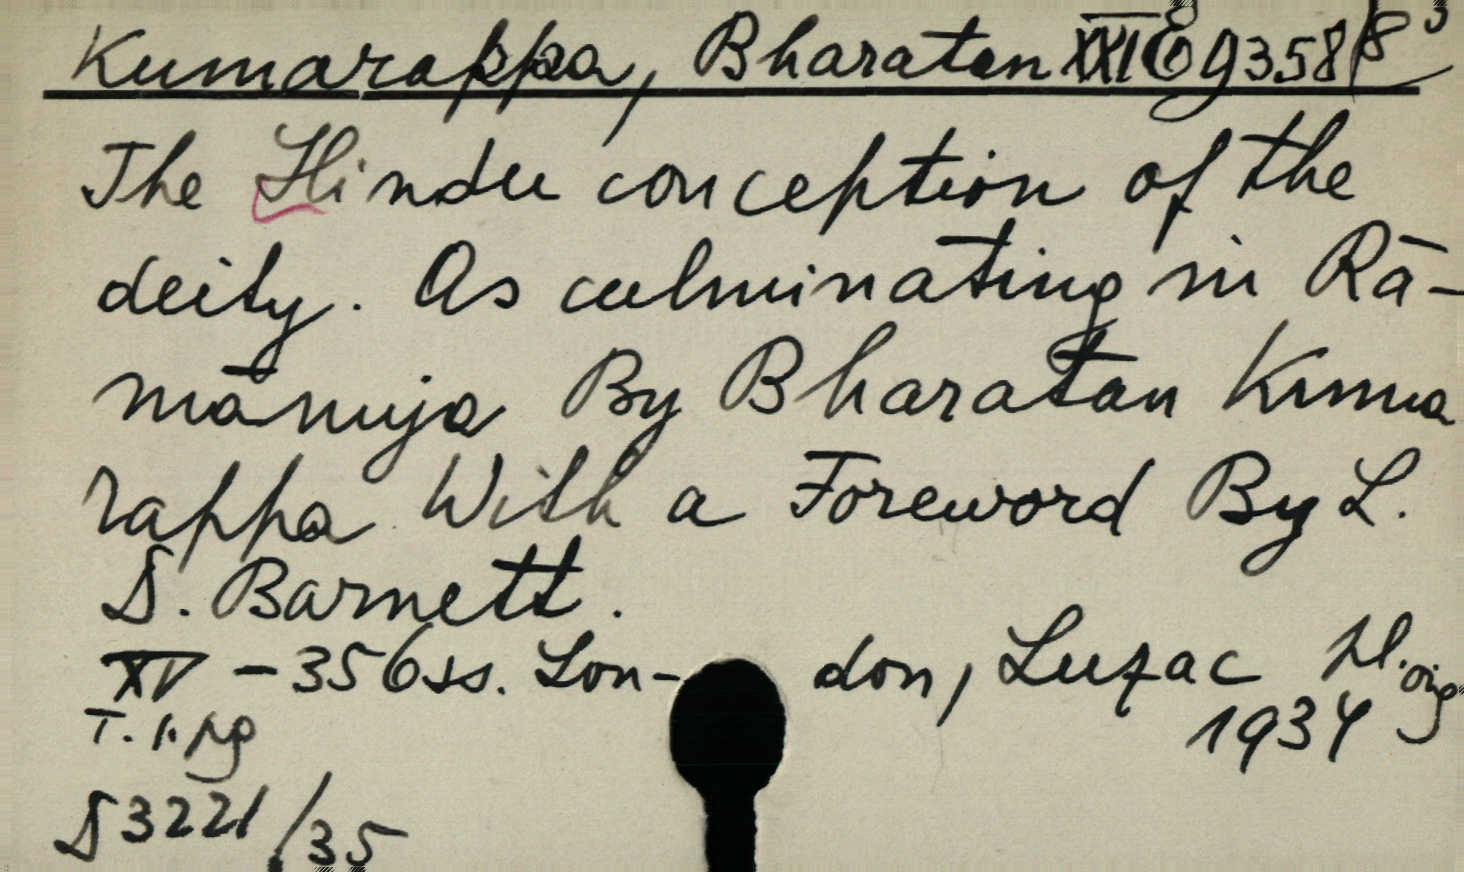 Kumarappa, Bharatan XXI 69358/8
The Hindu conception of the
deity. As culminating in Rā-
mānuja By Bharatan Kuma
rappa With a Foreword By L.
D. Barnett.
XV - 356 ss. London, Luzac
1934
D 3221/35